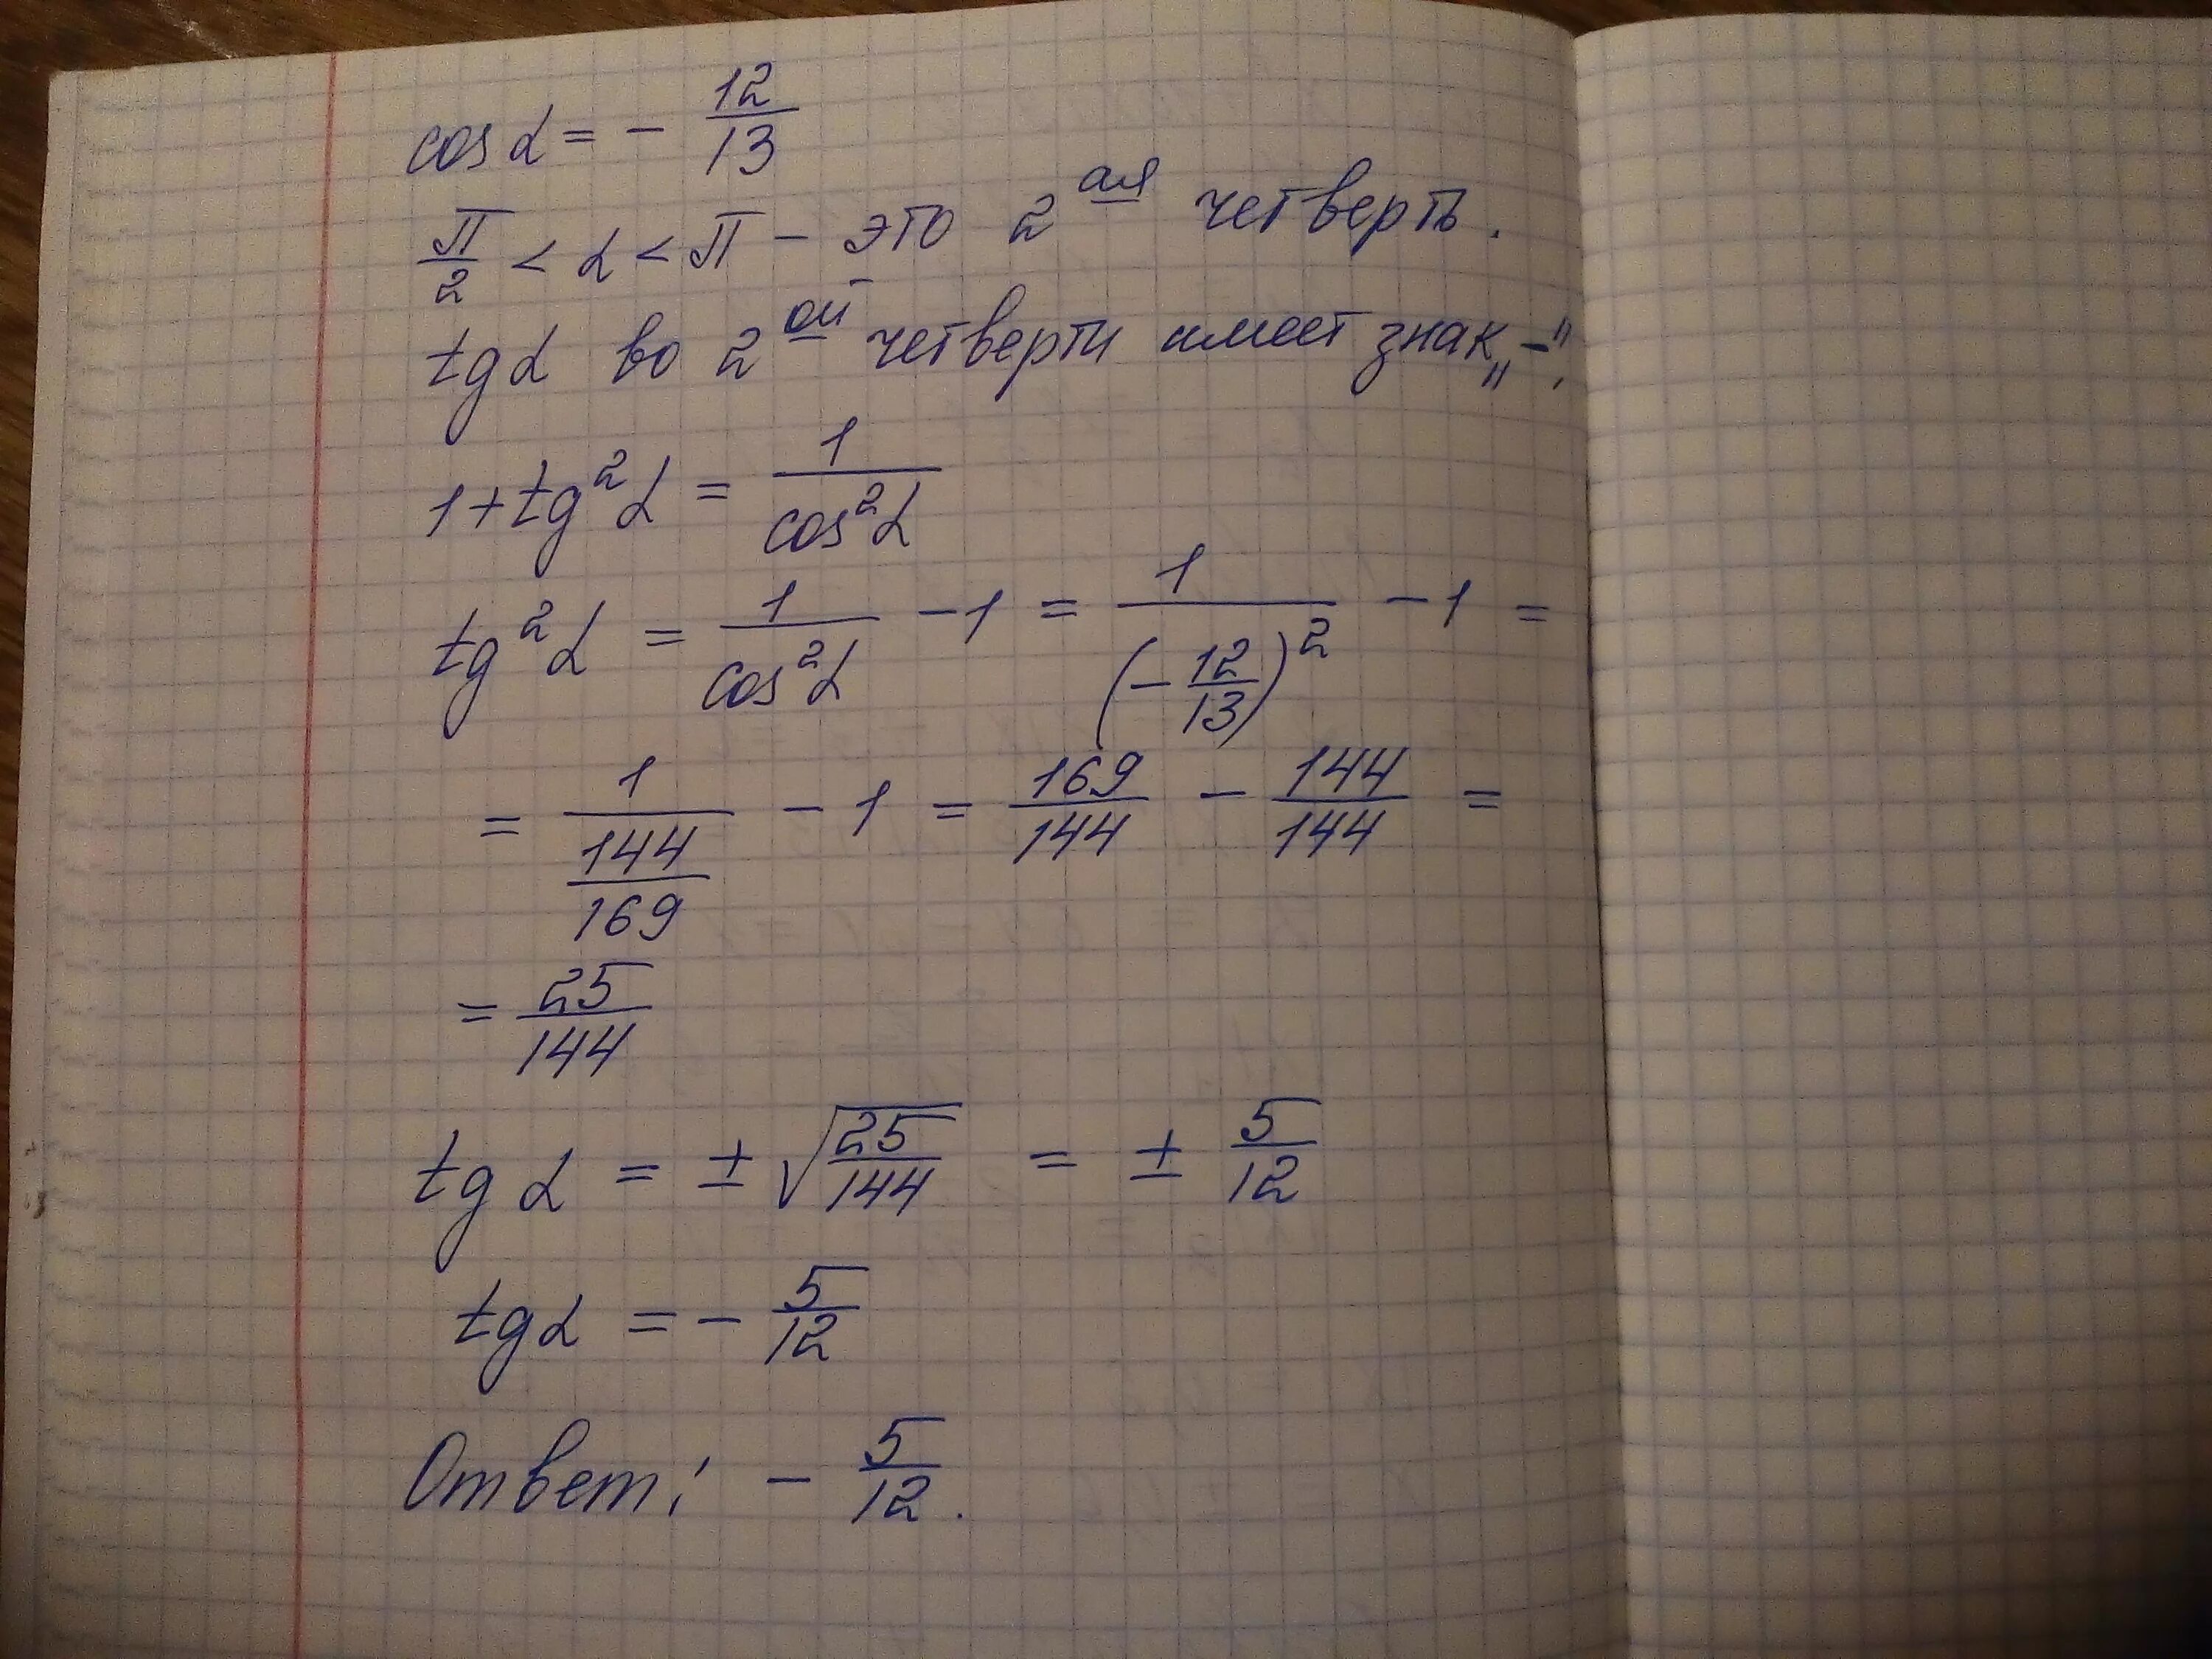 cos α = - 12/13
π/2 < α < π - это 2 ая четверть.
tg α во 2 ой четверти имеет знак „-“.
1 + tg²α = 1/cos²α
tg²α = 1/cos²α - 1 = 1/(-12/13)² - 1 =
= 1/(144/169) - 1 = 169/144 - 144/144 =
= 25/144
tg α = ± √(25/144) = ± 5/12
tg α = - 5/12
Ответ: - 5/12.